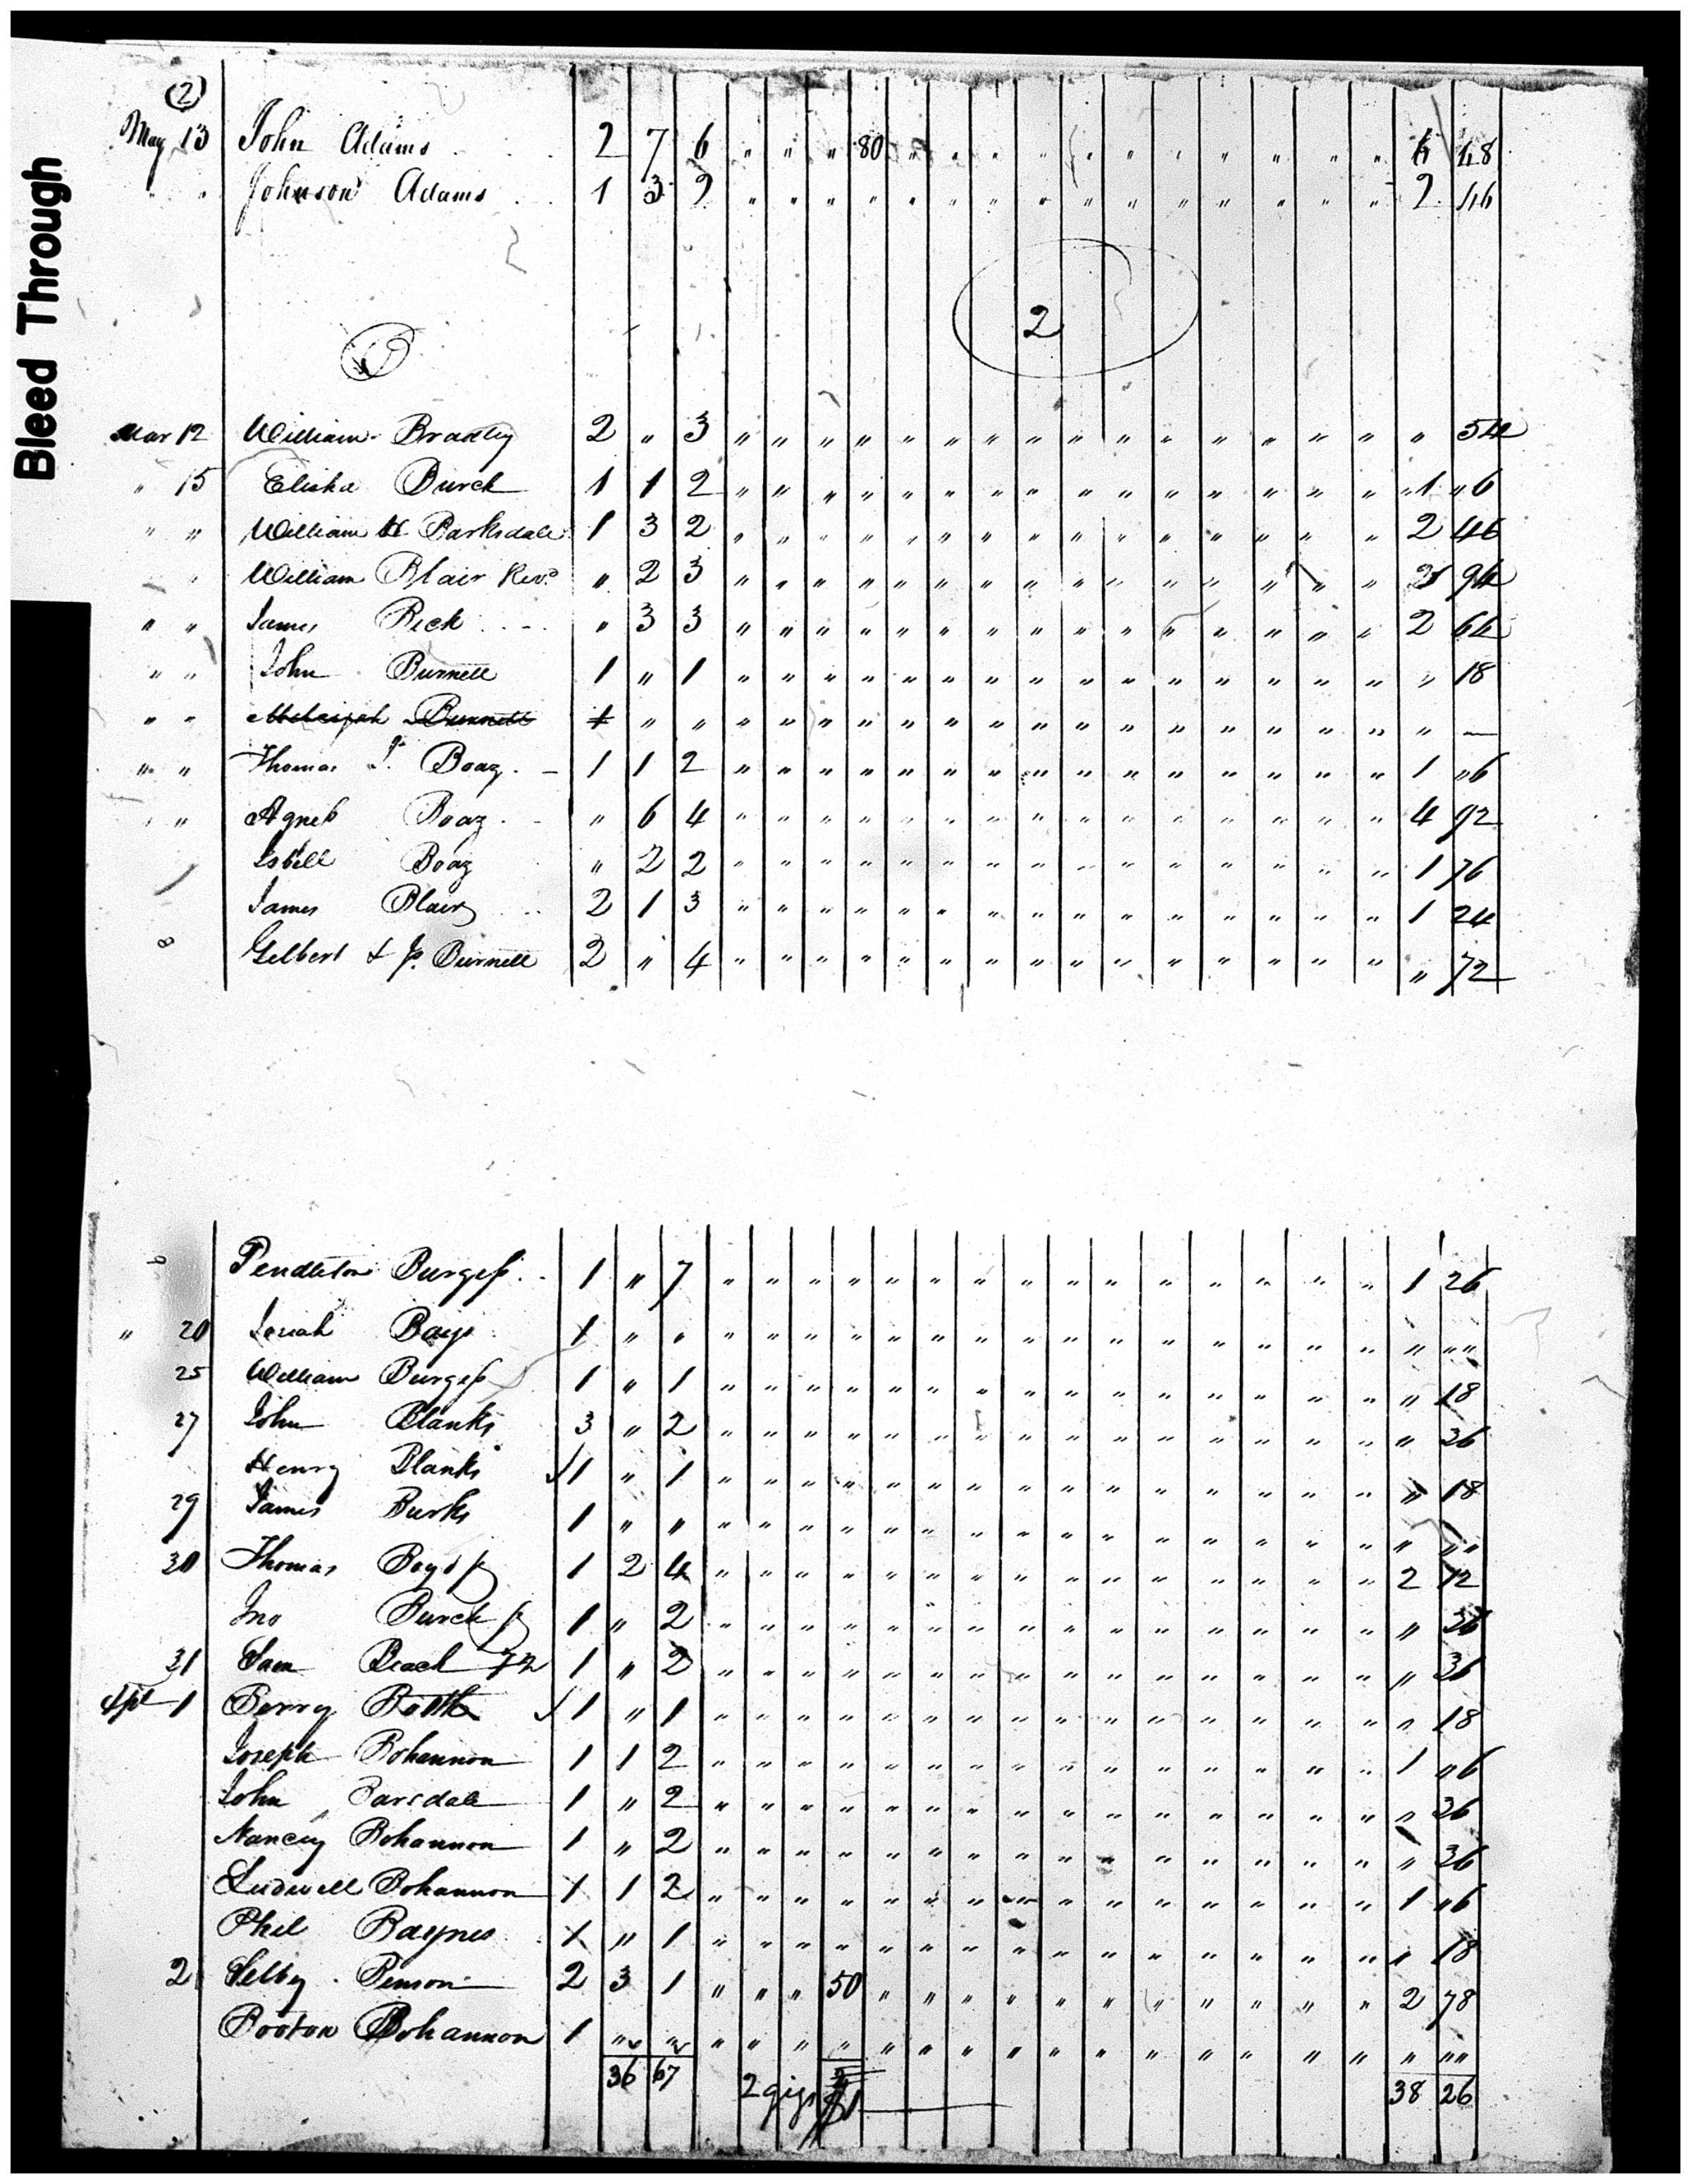 Bleed Through
(2)
May 13 John Adams 2 7 6 " " " 80 " " " " " " " " " " " 6 48
" " Johnson Adams 1 3 2 " " " " " " " " " " " " " " " 2 46
2
Mar 12 William Bradley 2 " 3 " " " " " " " " " " " " " " " " 54
" 15 Elisha Burch 1 1 2 " " " " " " " " " " " " " " " 1 " 6
" " William H Barksdale 1 3 2 " " " " " " " " " " " " " " " 2 46
" William Blair Revd " 2 3 " " " " " " " " " " " " " " " 94
" " James Beck " 3 3 " " " " " " " " " " " " " " " 2 64
" " John Burnett 1 " 1 " " " " " " " " " " " " " " " " 18
" " Burnett 1 " " " " " " " " " " " " " " " " " " —
" " Thomas Boaz 1 1 2 " " " " " " " " " " " " " " " 1 " 6
" Agness Boaz " 6 4 " " " " " " " " " " " " " " " 4 92
Isbell Boaz " 2 2 " " " " " " " " " " " " " " " 1 76
James Blair 2 1 3 " " " " " " " " " " " " " " " 1 24
8 Gilbert & Burnett 2 " 4 " " " " " " " " " " " " " " " " 72
Pendleton Burgess 1 " 7 " " " " " " " " " " " " " " " 1 26
" 20 Josiah Bays 1 " " " " " " " " " " " " " " " " " " " "
25 William Burgess 1 " 1 " " " " " " " " " " " " " " " " 18
27 John Blanks 3 " 2 " " " " " " " " " " " " " " " " 36
Henry Blanks 1 " 1 " " " " " " " " " " " " " " " " 18
29 James Burks 1 " " " " " " " " " " " " " " " " " " " "
30 Thomas Boyd 1 2 4 " " " " " " " " " " " " " " " 2 12
Jno Burch 1 " 2 " " " " " " " " " " " " " " " " 36
31 Sam Beach 1 " 2 " " " " " " " " " " " " " " " " 36
Apl 1 Perry Booth 1 " 1 " " " " " " " " " " " " " " " " 18
Joseph Bohannon 1 1 2 " " " " " " " " " " " " " " " 1 " 6
John Barsdale 1 " 2 " " " " " " " " " " " " " " " " 36
Nancy Bohannon 1 " 2 " " " " " " " " " " " " " " " " 36
Ludwell Bohannon 1 1 2 " " " " " " " " " " " " " " " 1 " 6
Phil Baynes 1 " 1 " " " " " " " " " " " " " " " " 18
2 Selby Benson 2 3 1 " " " 50 " " " " " " " " " " " 2 78
Booton Bohannon 1 " " " " " " " " " " " " " " " " " " " "
36 67 2 gigs 38 26